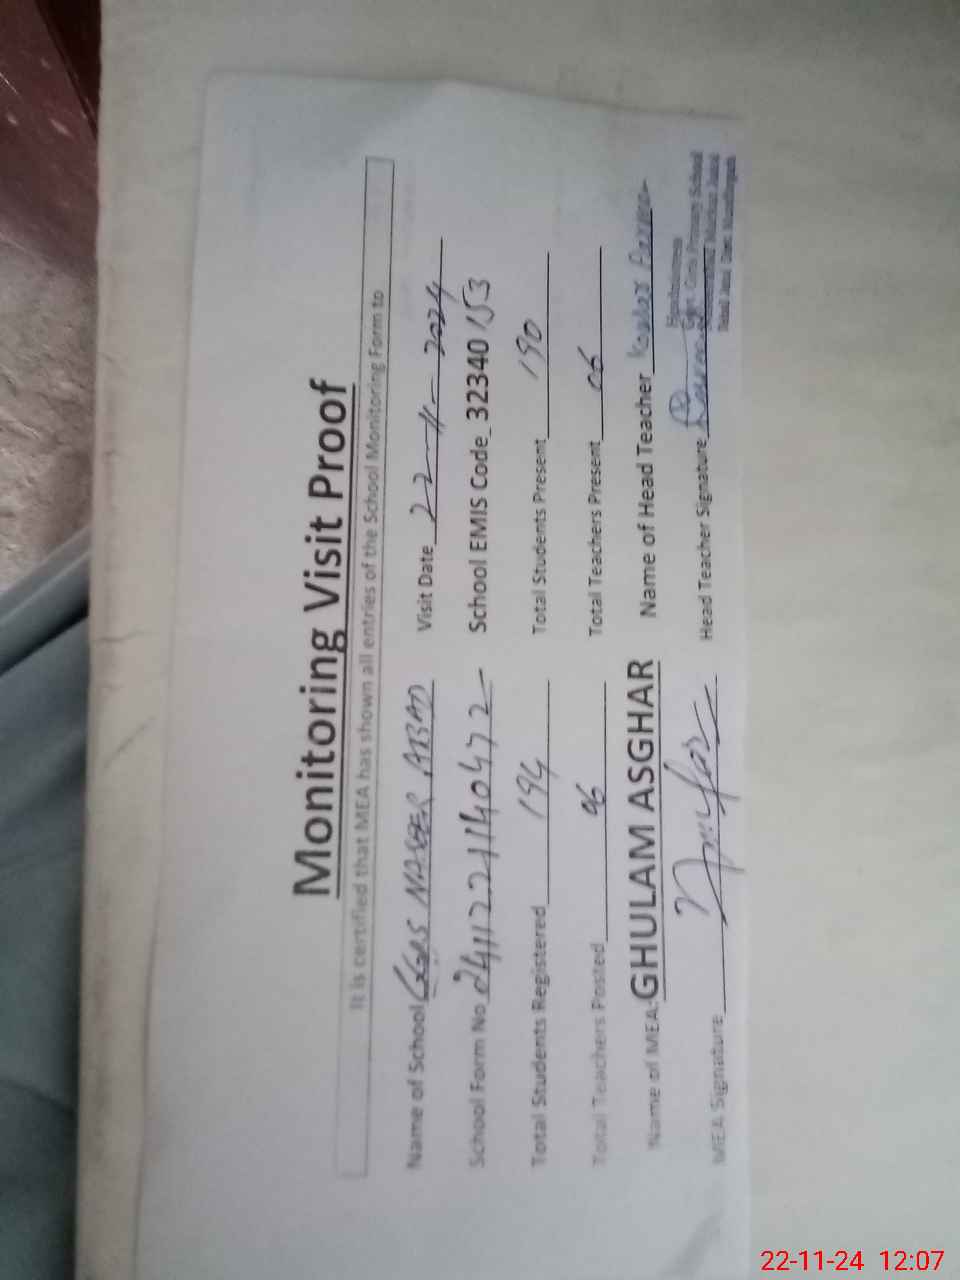 Monitoring Visit Proof
It is certified that MEA has shown all entries of the School Monitoring Form to
Name of School GGPS NASEER ABAD Visit Date 22-11-2024
School Form No 2411221140472 School EMIS Code_32340153
Total Students Registered 194 Total Students Present 190
Total Teachers Posted 06 Total Teachers Present 06
Name of MEA: GHULAM ASGHAR Name of Head Teacher Kosar Parveen
MEA Signature Head Teacher Signature
Headmistress
Govt. Girls Primary School
22-11-24 12:07